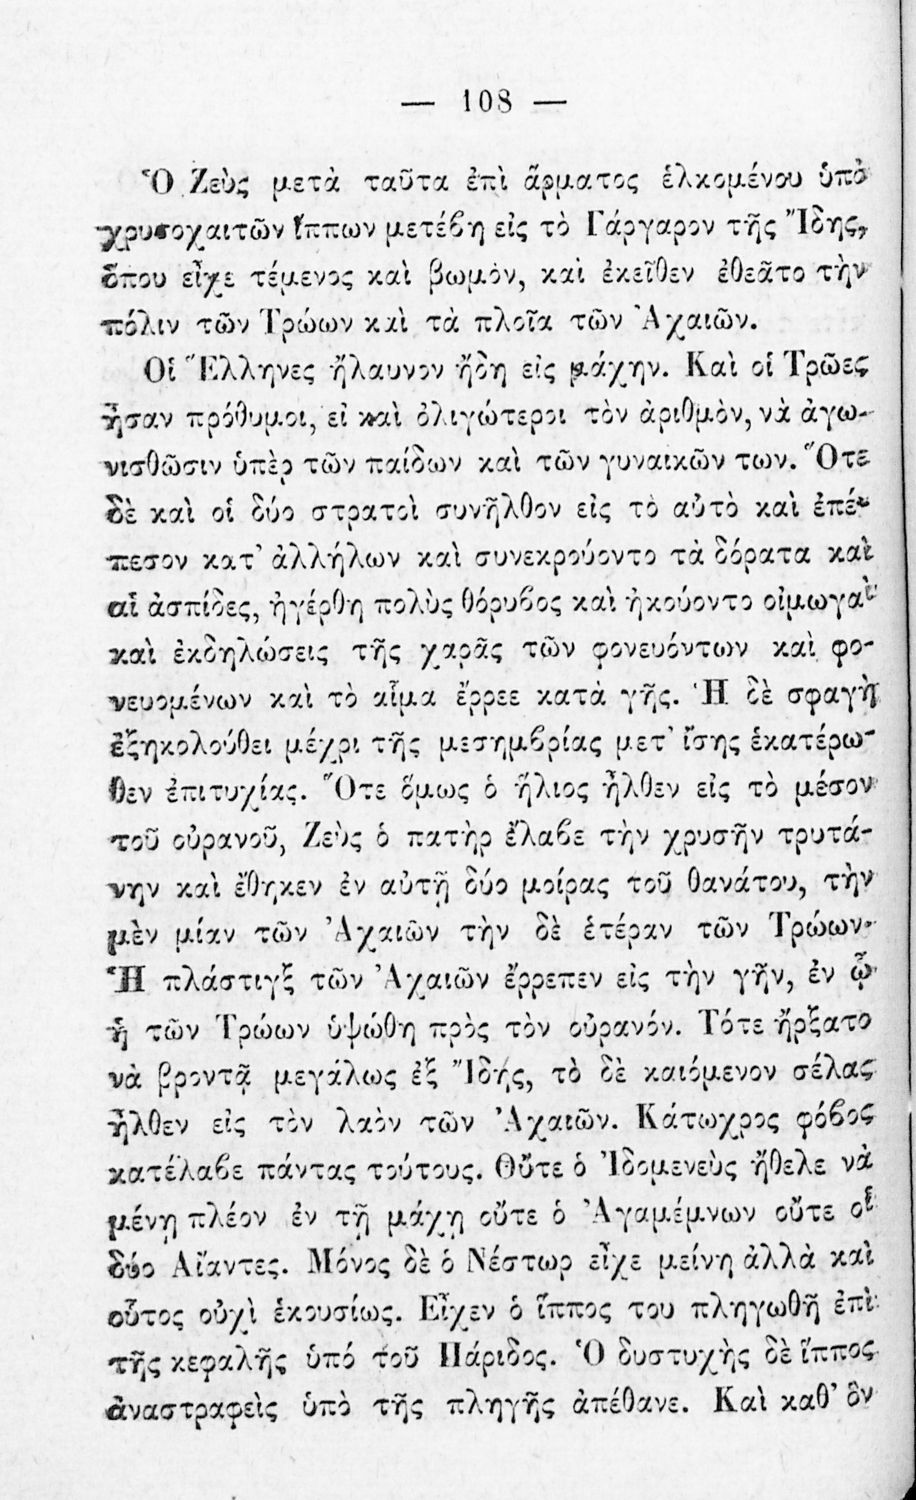 — 108 —
Ὁ Ζεὺς μετὰ ταῦτα ἐπὶ ἅρματος ἑλκομένου ὑπὸ
χρυσοχαιτῶν ἵππων μετέβη εἰς τὸ Γάργαρον τῆς Ἴδης,
ὅπου εἶχε τέμενος καὶ βωμὸν, καὶ ἐκεῖθεν ἐθεᾶτο τὴν
πόλιν τῶν Τρώων καὶ τὰ πλοῖα τῶν Ἀχαιῶν.
Οἱ Ἕλληνες ἤλαυνον ἤδη εἰς μάχην. Καὶ οἱ Τρῶες
ἦσαν πρόθυμοι, εἰ καὶ ὀλιγώτεροι τὸν ἀριθμὸν, νὰ ἀγω-
νισθῶσιν ὑπὲρ τῶν παίδων καὶ τῶν γυναικῶν των. Ὅτε
δὲ καὶ οἱ δύο στρατοὶ συνῆλθον εἰς τὸ αὐτὸ καὶ ἐπέ-
πεσον κατ' ἀλλήλων καὶ συνεκρούοντο τὰ δόρατα καὶ
αἱ ἀσπίδες, ἠγέρθη πολὺς θόρυβος καὶ ἠκούοντο οἰμωγαὶ
καὶ ἐκδηλώσεις τῆς χαρᾶς τῶν φονευόντων καὶ φο-
νευομένων καὶ τὸ αἷμα ἔρρεε κατὰ γῆς. Ἡ δὲ σφαγὴ
ἐξηκολούθει μέχρι τῆς μεσημβρίας μετ' ἴσης ἑκατέρω-
θεν ἐπιτυχίας. Ὅτε ὅμως ὁ ἥλιος ἦλθεν εἰς τὸ μέσον
τοῦ οὐρανοῦ, Ζεὺς ὁ πατὴρ ἔλαβε τὴν χρυσῆν τρυτά-
νην καὶ ἔθηκεν ἐν αὐτῇ δύο μοίρας τοῦ θανάτου, τὴν
μὲν μίαν τῶν Ἀχαιῶν τὴν δὲ ἑτέραν τῶν Τρώων·
Ἡ πλάστιγξ τῶν Ἀχαιῶν ἔρρεπεν εἰς τὴν γῆν, ἐν ᾧ
ἡ τῶν Τρώων ὑψώθη πρὸς τὸν οὐρανόν. Τότε ἤρξατο
νὰ βροντᾷ μεγάλως ἐξ Ἴδης, τὸ δὲ καιόμενον σέλας
ἦλθεν εἰς τὸν λαὸν τῶν Ἀχαιῶν. Κάτωχρος φόβος
κατέλαβε πάντας τούτους. Οὔτε ὁ Ἰδομενεὺς ἤθελε νὰ
μένῃ πλέον ἐν τῇ μάχῃ οὔτε ὁ Ἀγαμέμνων οὔτε οἱ
δύο Αἴαντες. Μόνος δὲ ὁ Νέστωρ εἶχε μείνη ἀλλὰ καὶ
οὗτος οὐχὶ ἑκουσίως. Εἶχεν ὁ ἵππος του πληγωθῆ ἐπὶ
τῆς κεφαλῆς ὑπό τοῦ Πάριδος. Ὁ δυστυχὴς δὲ ἵππος
ἀναστραφεὶς ὑπὸ τῆς πληγῆς ἀπέθανε. Καὶ καθ' ὃν